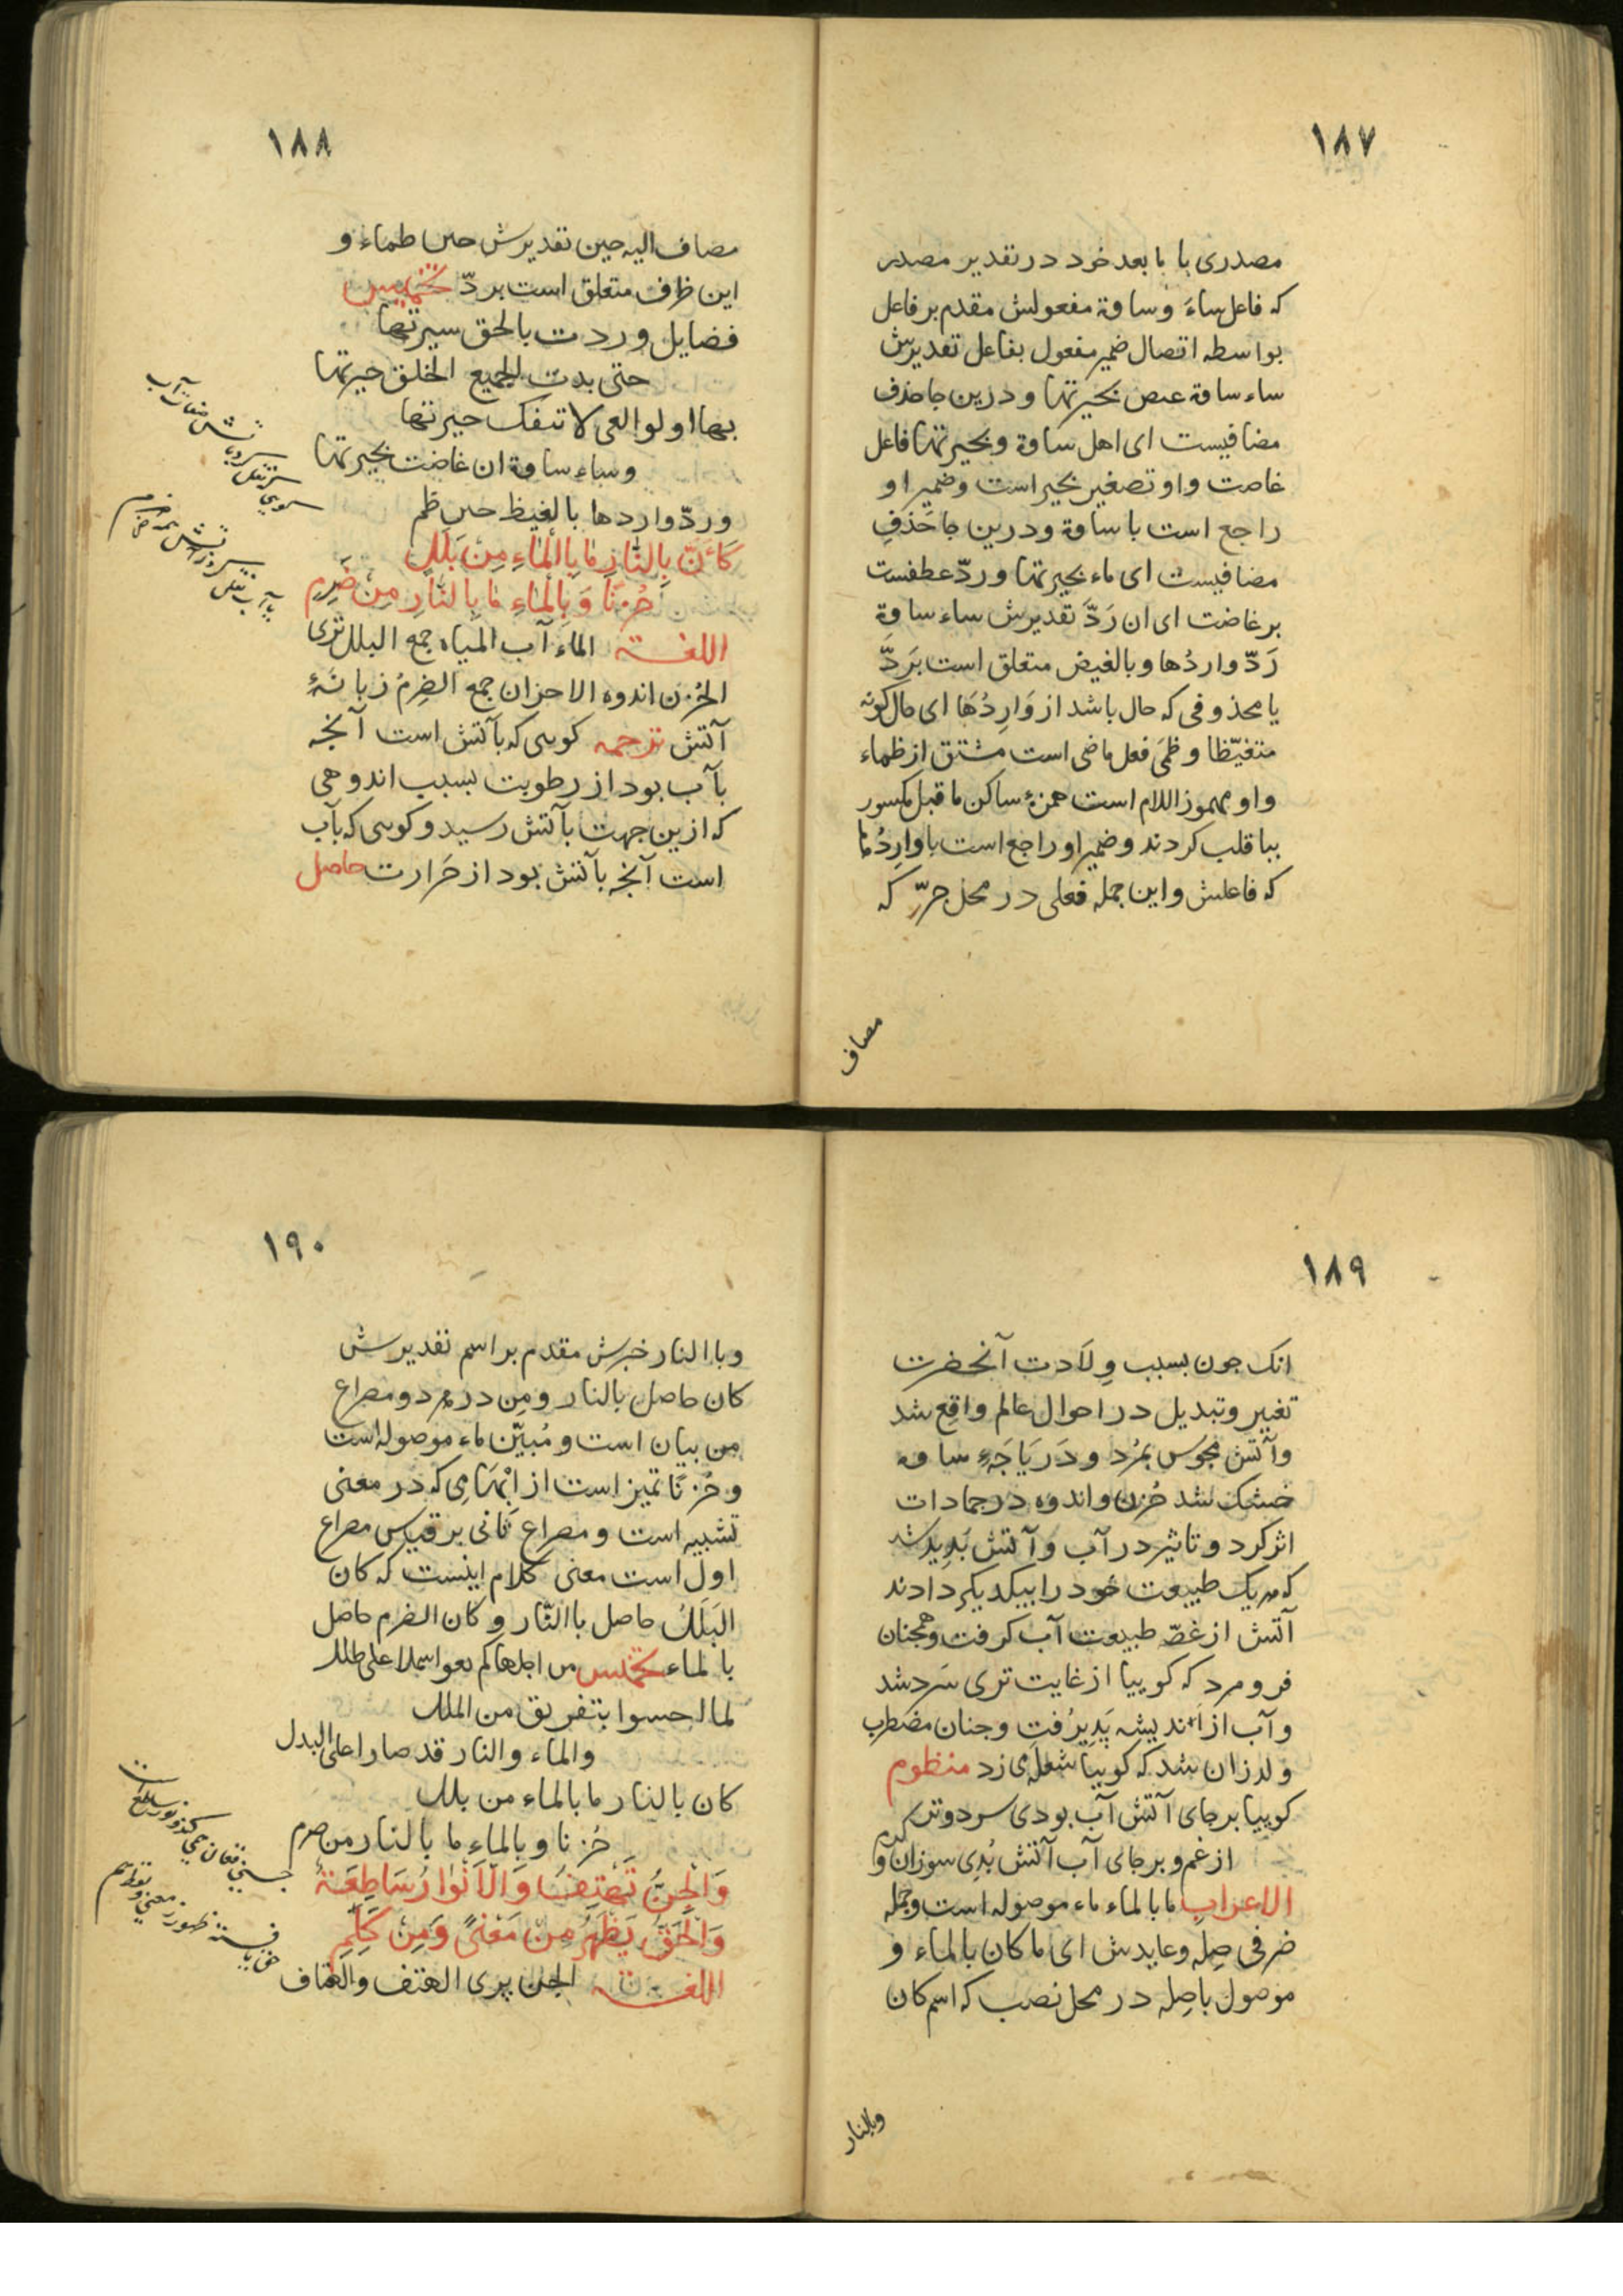 ١٨٧
مصدری با ما بعد خود در تقدیر مصدر
که فاعل ساءَ و ساوة مفعولش مقدم بر فاعل
بواسطه اتصال ضمیر مفعول بفاعل تقدیرش
ساء ساوة غیض بحیرتها و درین جا حذف
مضافیست ای اهل ساوة و بحیرتها فاعل
غاضت و او تصغیر بحیر است و ضمیر او
راجع است با ساوة و درین جا حَذفِ
مضافیست ای ماء بحیرتها و ردّ عطفست
بر غاضت ای ان رَدَّ تقدیرش ساء ساوةِ
رَدّ واردُها و بالغیض متعلق است بَردّ
یا محذوفی که حال باشد از وَارِدُهَا ای حال کونه
متغیّظا و ظمَی فعل ماضی است مشتق از ظماء
و او مهموز اللام است همزهٔ ساکن ما قبل مکسور
بیا قلب کردند و ضمیر او راجع است با وارِدُها
که فاعلش و این جمله فعلی در محل جرّ که
مضاف
١٨٨
مضاف الیه حین تقدیرش حین ظماء و
این ظرف متعلق است بردّ تخمیس
فضایل وردت بالحق سیرتها
حتی بدت لجمیع الخلق خیرتها
بها اولوا العی لا تنفک حیرتها
و ساء ساوة ان غاضت بحیرتها
و ردّ واردها بالغیظ حین ظم
کَأَنَّ بِالنَّارِ مَا بِالْمَاءِ مِنْ بَلَلٍ
حُزْنًا وَبِالْمَاءِ مَا بِالنَّارِ مِنْ ضَرِمِ
اللغـــة الماءَ آب المیاه جمع البلل تری
الحُزن اندوه الاحزان جمع الضرِمُ زبانهٔ
آتش ترجمه کویی که بآتش است آنچه
بآب بود از رطوبت بسبب اندوهی
که ازین جهت بآتش رسید و کویی که بآب
است آنچه بآتش بود از حَرارت حاصل
١٨٩
انک جون بسبب وِلَادت آنحضرت
تغییر و تبدیل در احوال عالم واقع شد
و آتش مجوس بمُرد و دَریَاجَهِٔ ساوه
خشک شد حُزن و اندوه در جمادات
اثر کرد و تاثیر در آب و آتش بَدِید شد
که هر یک طبیعت خود را بیکدیکر دادند
آتش از غصّه طبیعت آب کرفت و همجنان
فرو مرد که کوییا از غایت تری سَرد شد
و آب از اندیشه پَدیرُفت و جنان مضطرب
و لرزان شد که کوییا شعله می زد منظوم
کوییا بر جای آتش آب بودی سرد و تر
از غم و بر جای آب آتش بُدِی سوزان و
الاعراب ما بالماء ماء موصوله است و جمله
ضرفی صِله و عایدش ای ما کان بالماء و
موصول با صِله در محل نصب که اسم کان
وبالنار
١٩٠
و با النار خبرش مقدم بر اسم تقدیرش
کان حاصل بالنار و مِن در هر دو مصراع
من بیان است و مُبیّن ماء موصوله است
و حُزنًا تمیز است از اِبْهَامِی که در معنی
تشبیه است و مصراع ثانی بر قیاس مصراع
اول است معنی کلام اینست که کان
البَلَلُ حاصل با النّار و کان الضرم حاصل
بالماء تخمیس
لما
والماء والنار قد صارا علی البدل
کان بالنار ما بالماء من بلل
حُزنا و بالماءِ ما بالنار من ضرم
وَالْجِنُّ تَهْتِفُ وَالْاَنْوَارُ سَاطِعَةٌ
وَالْحَقُّ یَظْهَرُ مِنْ مَعْنًی وَمِنْ کَلِمِ
اللغــــة الجن پری الهتف والهتاف